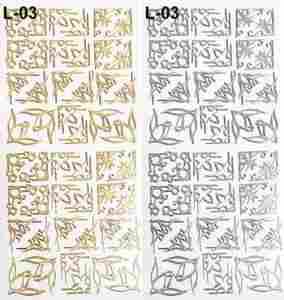 L-03 L-03